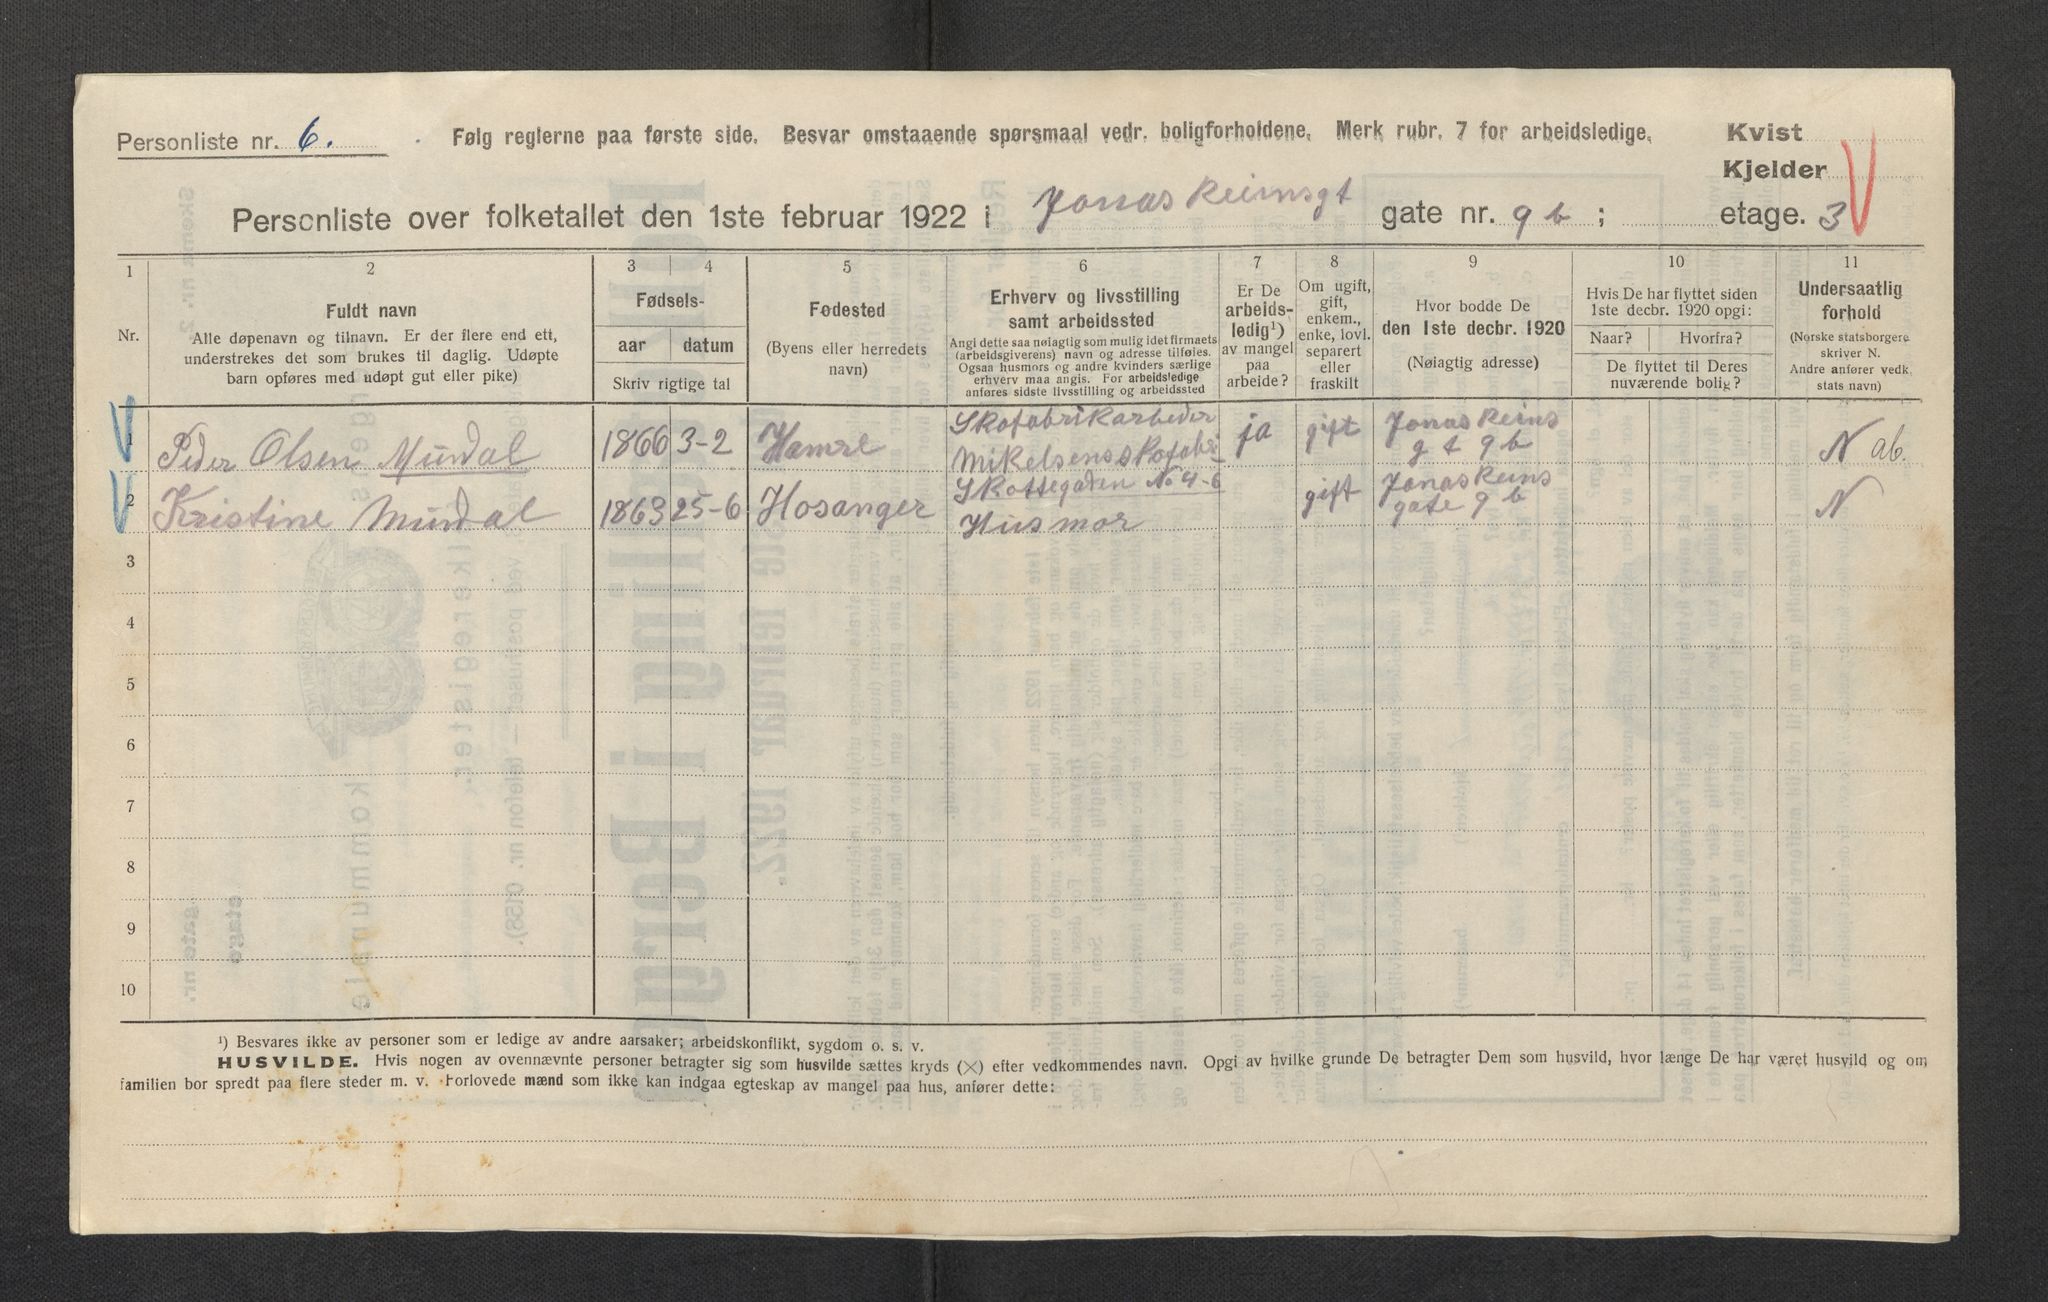 Personliste nr. 6.
Følg reglerne paa første side. Besvar omstaaende spørsmaal vedr. boligforholdene. Merk rubr. 7 for arbeidsledige.
Kvist
Kjelder
Personliste over folketallet den 1ste februar 1922 i Jonas Reinsgt gate nr. 9 b ; etage. 3
1 2 3 4 5 6 7 8 9 10 11
Nr.
Fuldt navn
Alle døpenavn og tilnavn. Er der flere end ett,
understrekes det som brukes til daglig. Udøpte
barn opføres med udøpt gut eller pike)
Fødsels-
aar datum
Skriv rigtige tal
Fødested
(Byens eller herredets
navn)
Erhverv og livsstilling
samt arbeidssted
Angi dette saa nøiagtig som mulig idet firmaets
(arbeidsgiverens) navn og adresse tilføies.
Ogsaa husmors og andre kvinders særlige
erhverv maa angis. For arbeidsledige
anføres sidste livsstilling og arbeidssted
Er De
arbeids-
ledig¹)
av mangel
paa
arbeide?
Om ugift,
gift,
enkem.,
enke, lovl.
separert
eller
fraskilt
Hvor bodde De
den 1ste decbr. 1920
(Nøiagtig adresse)
Hvis De har flyttet siden
1ste decbr. 1920 opgi:
Naar? Hvorfra?
De flyttet til Deres
nuværende bolig?
Undersaatlig
forhold
(Norske statsborgere
skriver N.
Andre anfører vedk.
stats navn)
1 Peder Olsen Mundal 1866 3-2 Hamre Skofabrikarbeder ja gift Jonas Reins N ab.
Mikelsens skofabr gt 9 b
Skottegaden No 4-6
2 Kristine Mundal 1863 25-6 Hosanger Husmor gift Jonas Reins N
gate 9 b
3
4
5
6
7
8
9
10
¹) Besvares ikke av personer som er ledige av andre aarsaker; arbeidskonflikt, sygdom o. s. v.
HUSVILDE. Hvis nogen av ovennævnte personer betragter sig som husvilde sættes kryds (×) efter vedkommendes navn. Opgi av hvilke grunde De betragter Dem som husvild, hvor længe De har været husvild og om
familien bor spredt paa flere steder m. v. Forlovede mænd som ikke kan indgaa egteskap av mangel paa hus, anfører dette: